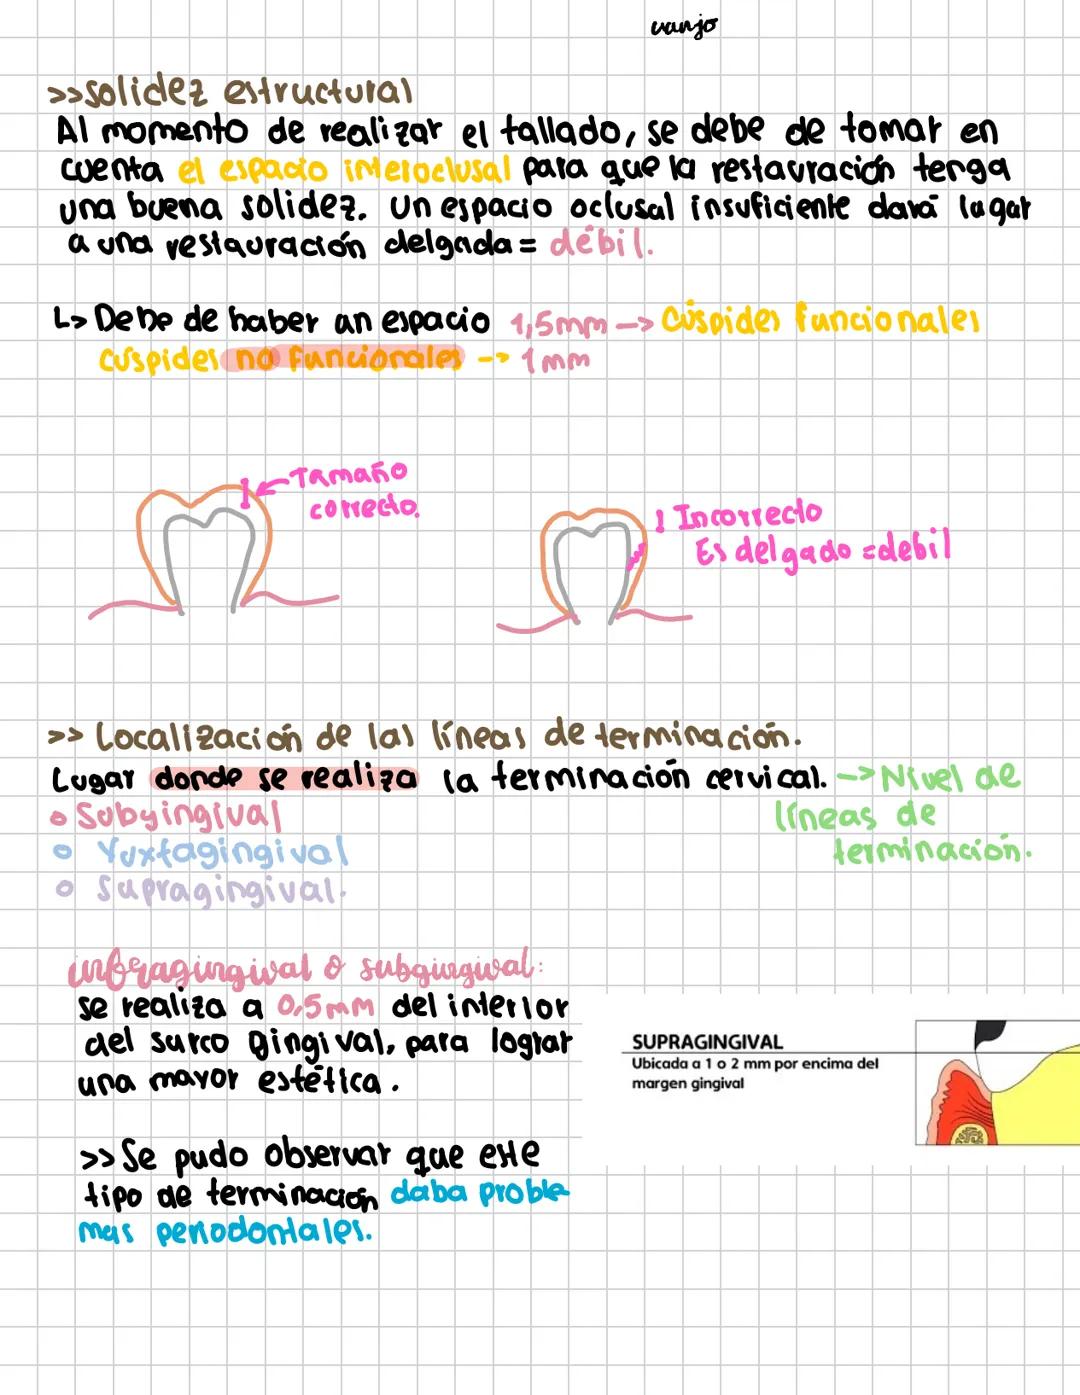 vanjo
>>solidez estructural
Al momento de realizar el tallado, se debe de tomar en
cuenta el espacio interoclusal para que la restauración tenga
una buena solidez. Un espacio oclusal insuficiente dará lugar
a una restauración delgada = débil.
↳ Debe de haber un espacio 1,5mm -> Cúspides funcionales
cúspides no funcionales -> 1mm
Tamaño
correcto.
! Incorrecto
Es delgado = debil
>> Localización de las líneas de terminación.
Lugar donde se realiza la terminación cervical. -> Nivel de
líneas de
terminación.
o Subgingival
o Yuxtagingival
o Supragingival.
infragingival o subgingival:
se realiza a 0,5mm del interior
del surco gingival, para lograr
una mayor estética.
SUPRAGINGIVAL
Ubicada a 1 o 2 mm por encima del
margen gingival
>> Se pudo observar que este
tipo de terminación daba proble
mas periodontales.